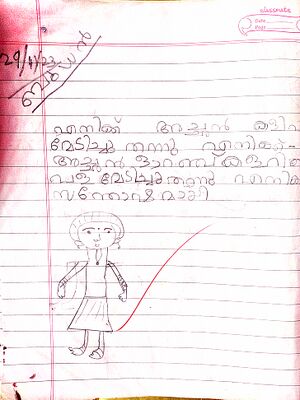 classmate
Date
Page
29/11/23
ബുധൻ
എനിക്ക് അച്ഛൻ കളിപ
വേടിച്ചു തന്നു എനിക്ക്
അച്ഛൻ ഓറഞ്ച് കളറിൽ
വള വേടിച്ചു തന്നു എനിക
സന്തോഷമായി